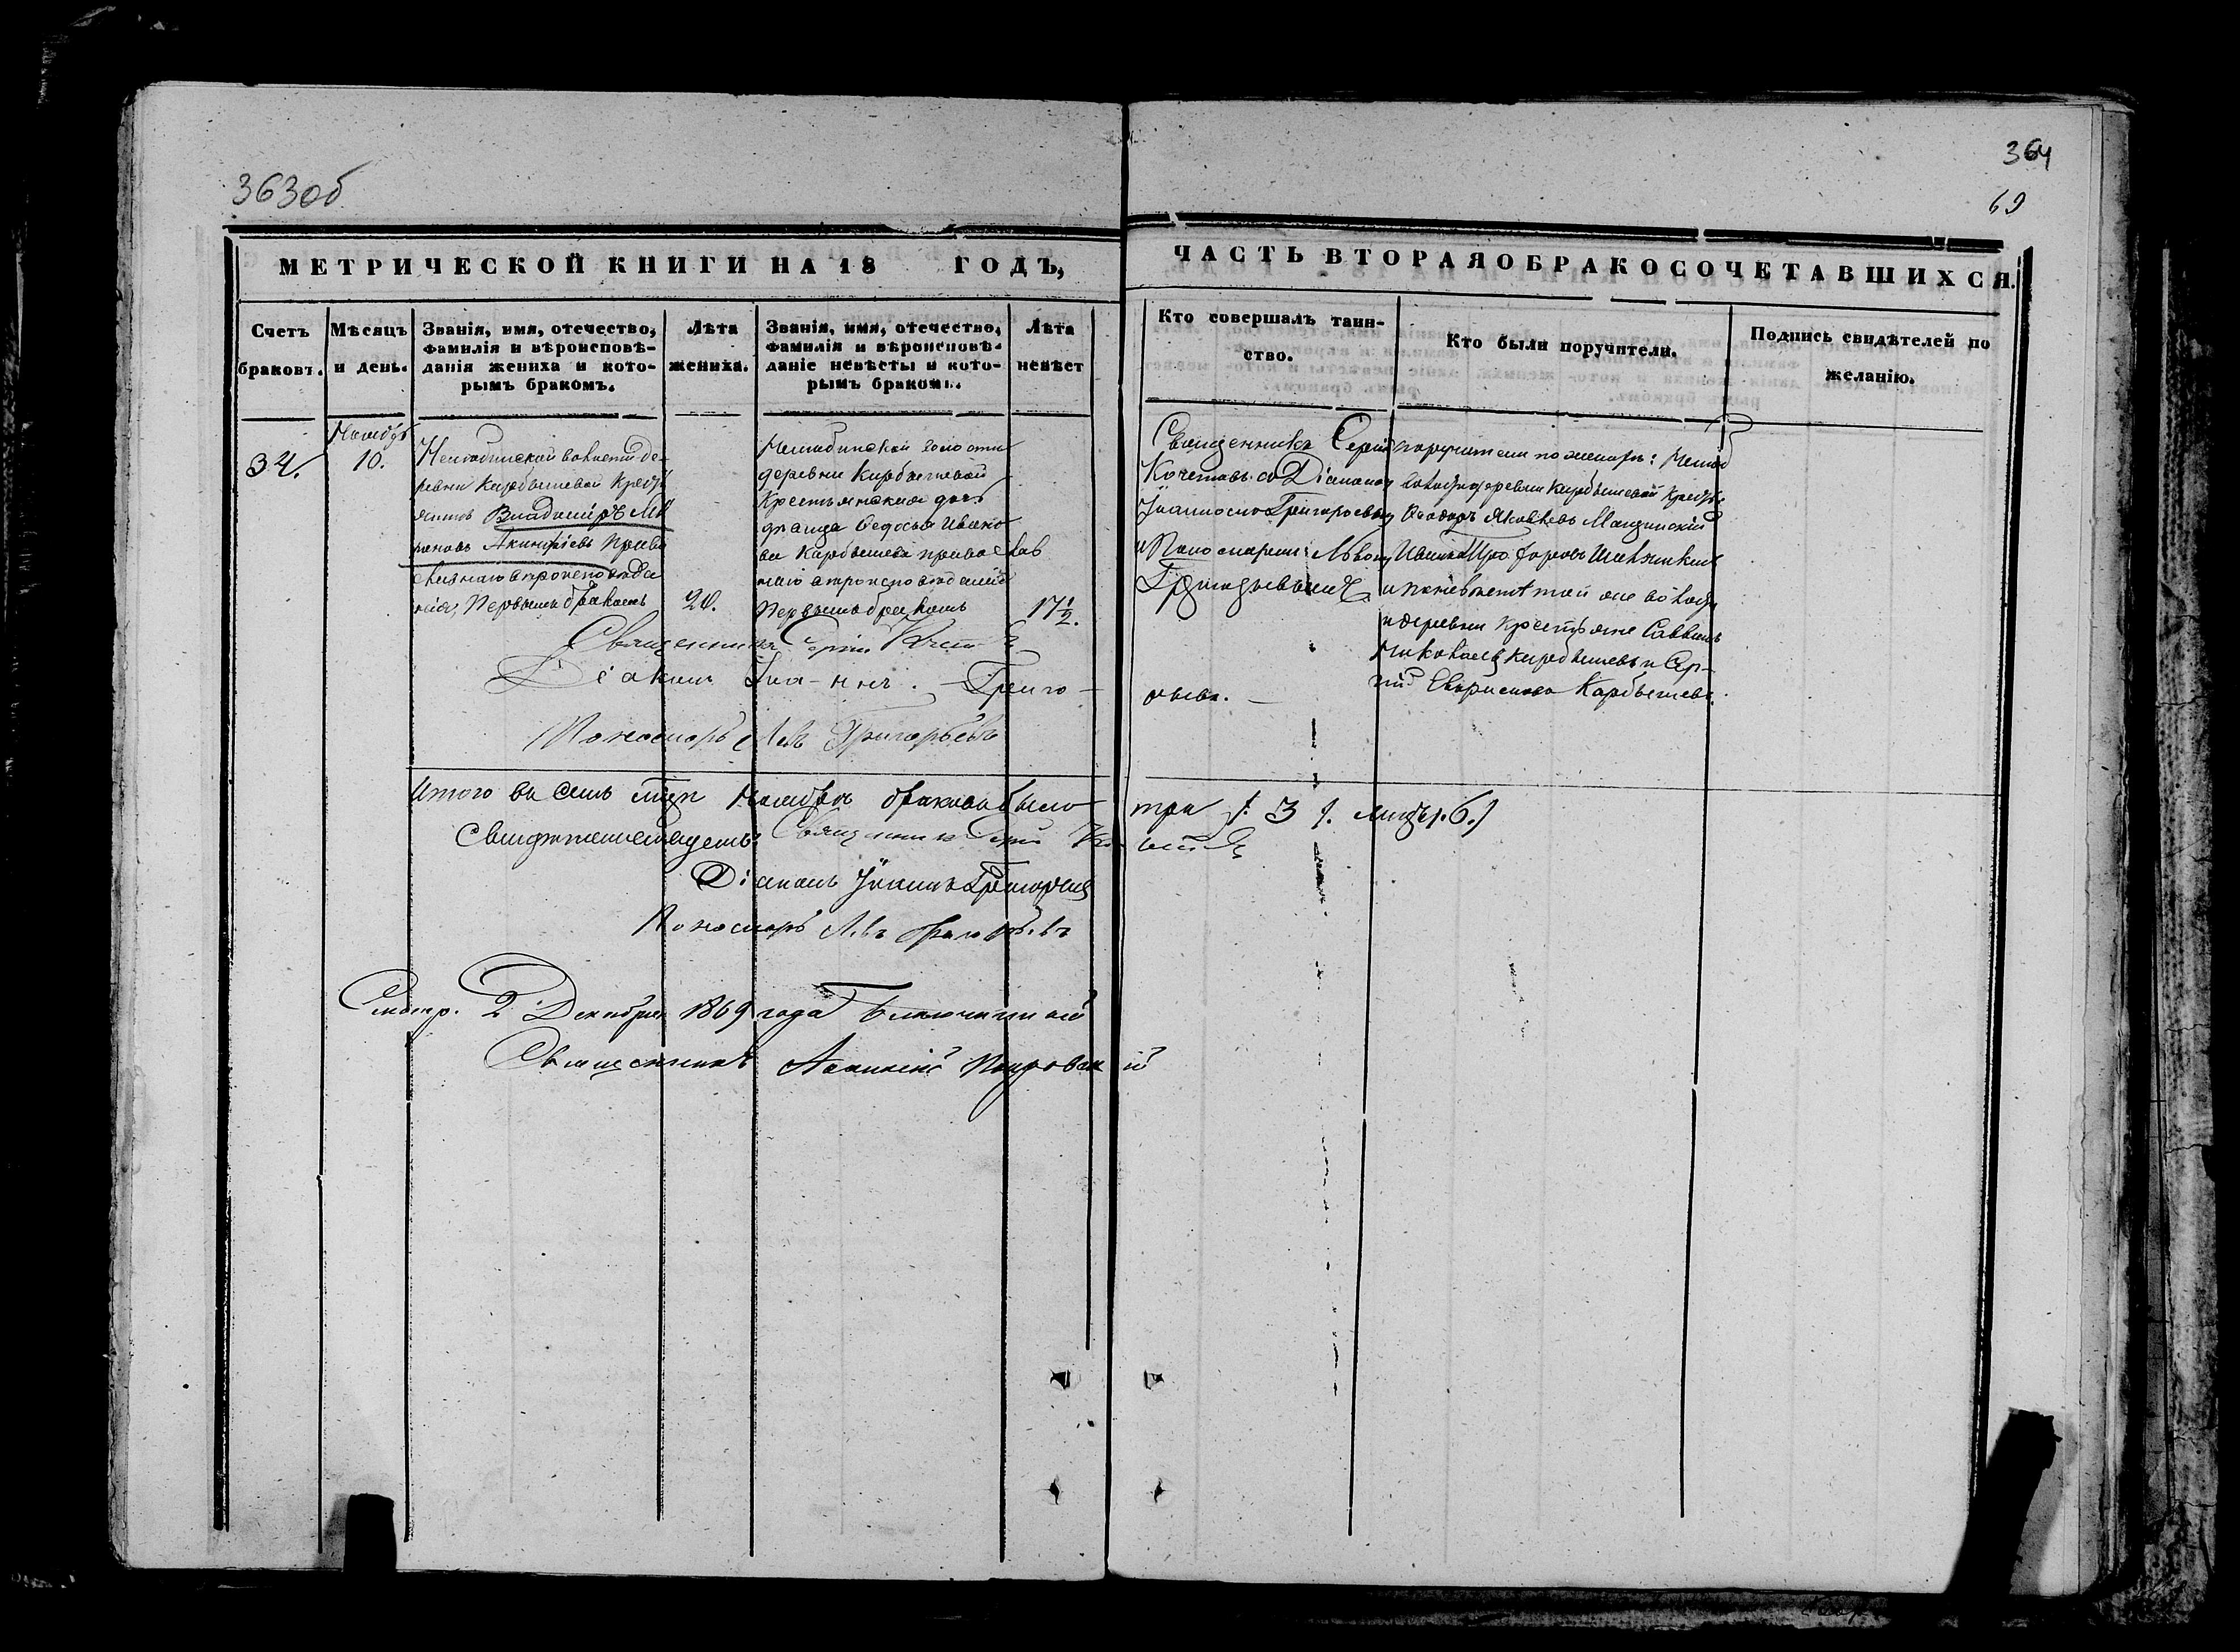 363 об
364
69
МЕТРИЧЕСКОЙ КНИГИ НА 18 ГОДЪ,
ЧАСТЬ ВТОРАЯ О БРАКОСОЧЕТАВШИХСЯ.
Счетъ браковъ.
Мѣсяцъ и день.
Званія, имя, отечество,
фамилія и вѣроисповѣ-
данія жениха и кото-
рымъ бракомъ.
Лѣта
жениха.
Званія, имя, отечество,
фамилія и вѣроисповѣ-
даніе невѣсты и кото-
рымъ бракомъ.
Лѣта
невѣст
Кто совершалъ таин-
ство.
Кто были поручители.
Подпись свидѣтелей по
желанію.
34.
Ноябрь
10.
волости де-
ревни Карбышевой Крест
янинъ Владиміръ
Акинфіевъ Право
славнаго вѣроисповѣда
нія, Первымъ бракомъ
20.
волости
деревни Карбышевой
Крестьянская доч
дѣвица Ѳедосья Ивано
ва Карбышева православ
наго вѣроисповѣданія
Первымъ бракомъ
17 1/2.
Священникъ Сергій
Кочетовъ со Діакономъ
Іоанномъ Григорьевымъ
и Пономаремъ Львомъ
Григорьевымъ.
поручители по женихѣ:
деревни Карбышевой Крестья
Ѳеодоръ Яковлевъ
Иванъ
и по невѣстѣ той же волости
и деревни Крестьяне Савва
Николаевъ Карбышевъ и Сер-
гій Карбышевъ.
Священникъ Сергій
Діаконъ Іоаннъ Григо-
рьевъ.
Пономарь Левъ Григорьевъ
Итого въ семъ Ноябрѣ браковъ было три /. 3 /. лицъ /. 6 ./
Священникъ Сергій
Діаконъ Іоаннъ Григорьевъ
Пономарь Левъ Григорьевъ
Смотр. 2 Декабря 1869 года Благочинный
Священникъ Покровскій